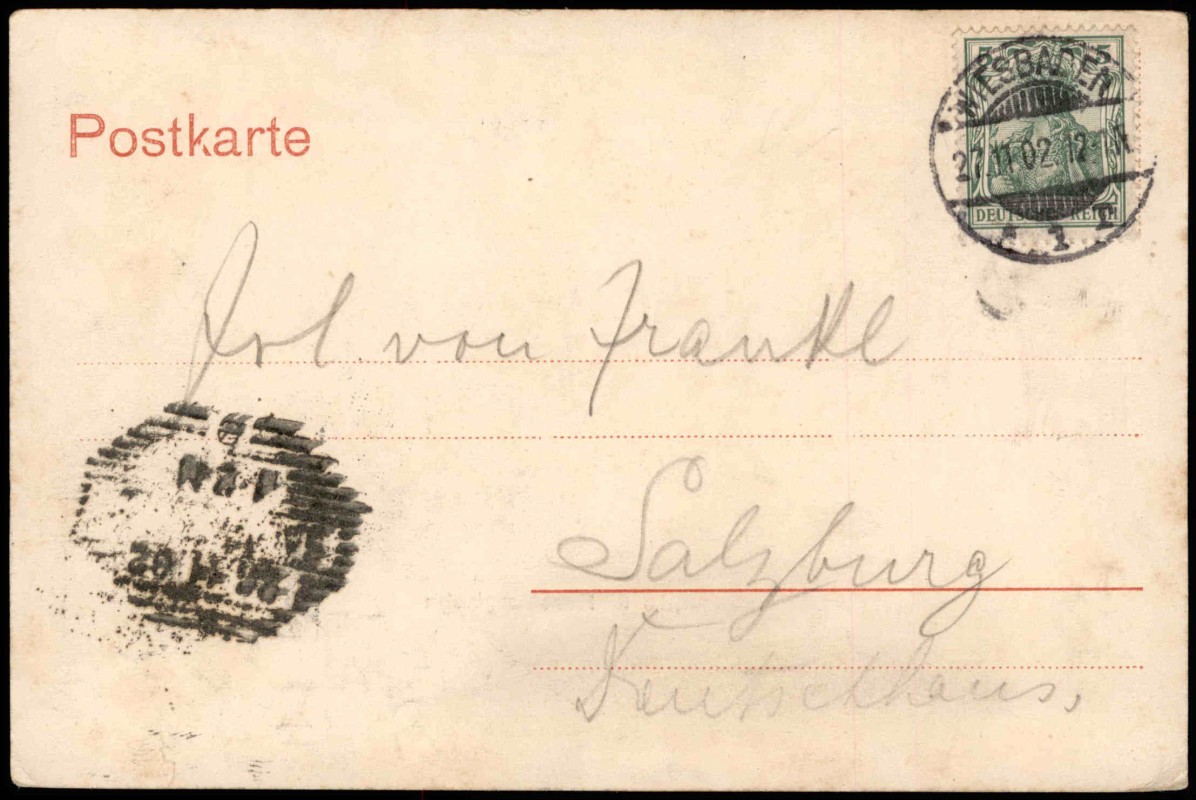 Postkarte
5 5
WIESBADEN
27.11.02. 12
DEUTSCHES REICH
1
von Frankl
Salzburg
Deutschhaus.